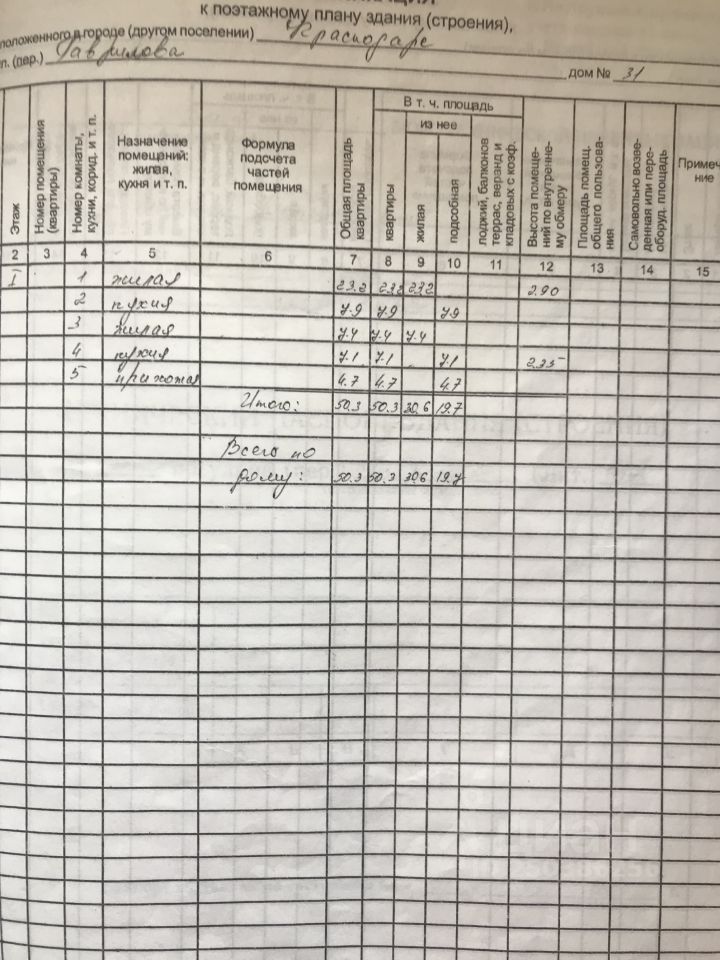 к поэтажному плану здания (строения),
положенного в городе (другом поселении) Краснодаре
л. (пер.) Гаврилова
дом № 31
Этаж
Номер помещения (квартиры)
Номер комнаты, кухни, корид. и т. п.
Назначение помещений: жилая, кухня и т. п.
Формула подсчета частей помещения
Общая площадь квартиры
В т. ч. площадь
квартиры
из нее
жилая
подсобная
лоджий, балконов террас, веранд и кладовых с коэф.
Высота помеще-ний по внутренне-му обмеру
Площадь помещ. общего пользова-ния
Самовольно возве-денная или пере-оборуд. площадь
Примеч ние
2 3 4 5 6 7 8 9 10 11 12 13 14 15
I 1 жилая 23.2 23.2 23.2 2.90
2 кухня 7.9 7.9 7.9
3 жилая 7.4 7.4 7.4
4 кухня 7.1 7.1 7.1 2.35
5 прихожая 4.7 4.7 4.7
Итого: 50.3 50.3 30.6 19.7
Всего по
дому: 50.3 50.3 30.6 19.7